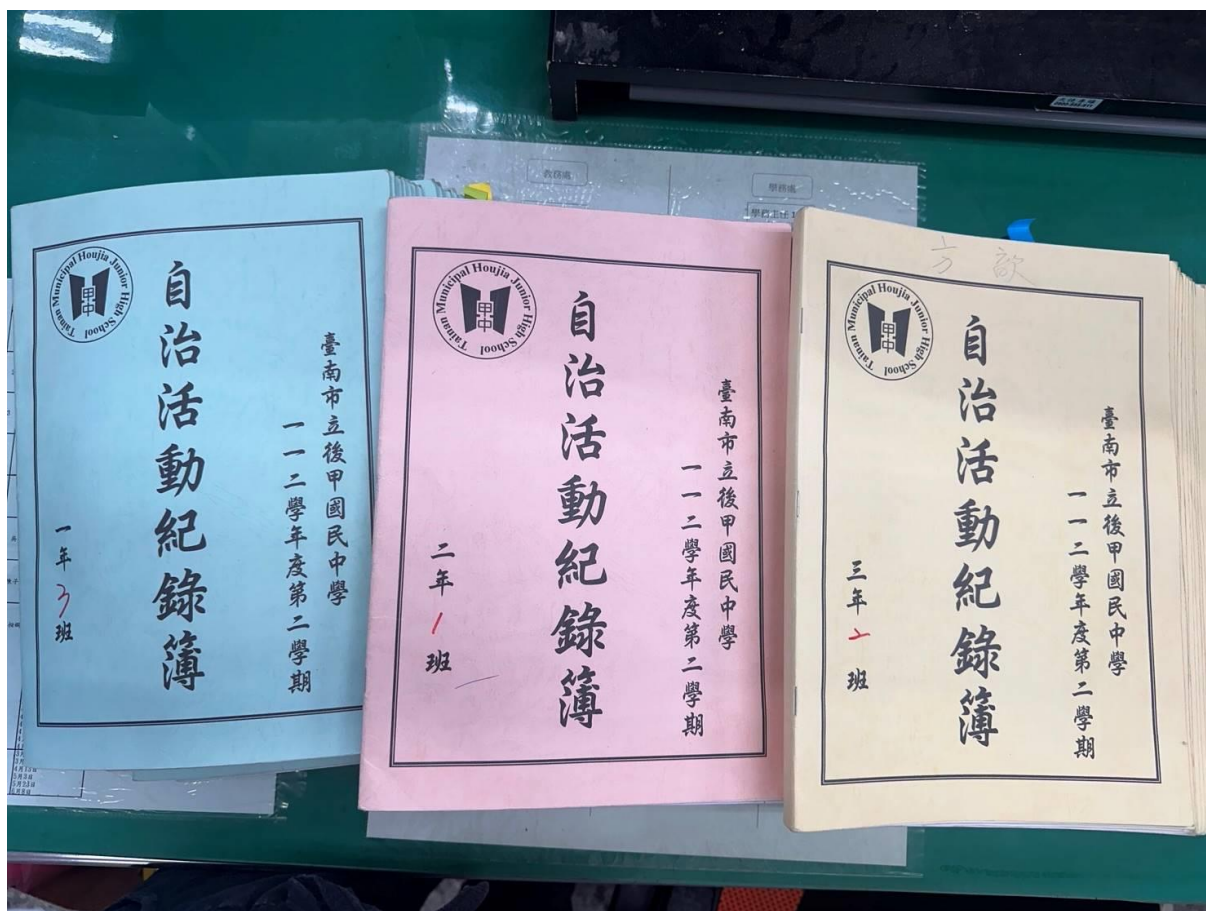 Tainan Municipal Houjia Junior High School
甲中
臺南市立後甲國民中學
一一二學年度第二學期
自治活動紀錄簿
一年3班
Tainan Municipal Houjia Junior High School
甲中
臺南市立後甲國民中學
一一二學年度第二學期
自治活動紀錄簿
二年1班
方歆
Tainan Municipal Houjia Junior High School
甲中
臺南市立後甲國民中學
一一二學年度第二學期
自治活動紀錄簿
三年2班
教務處
學務處